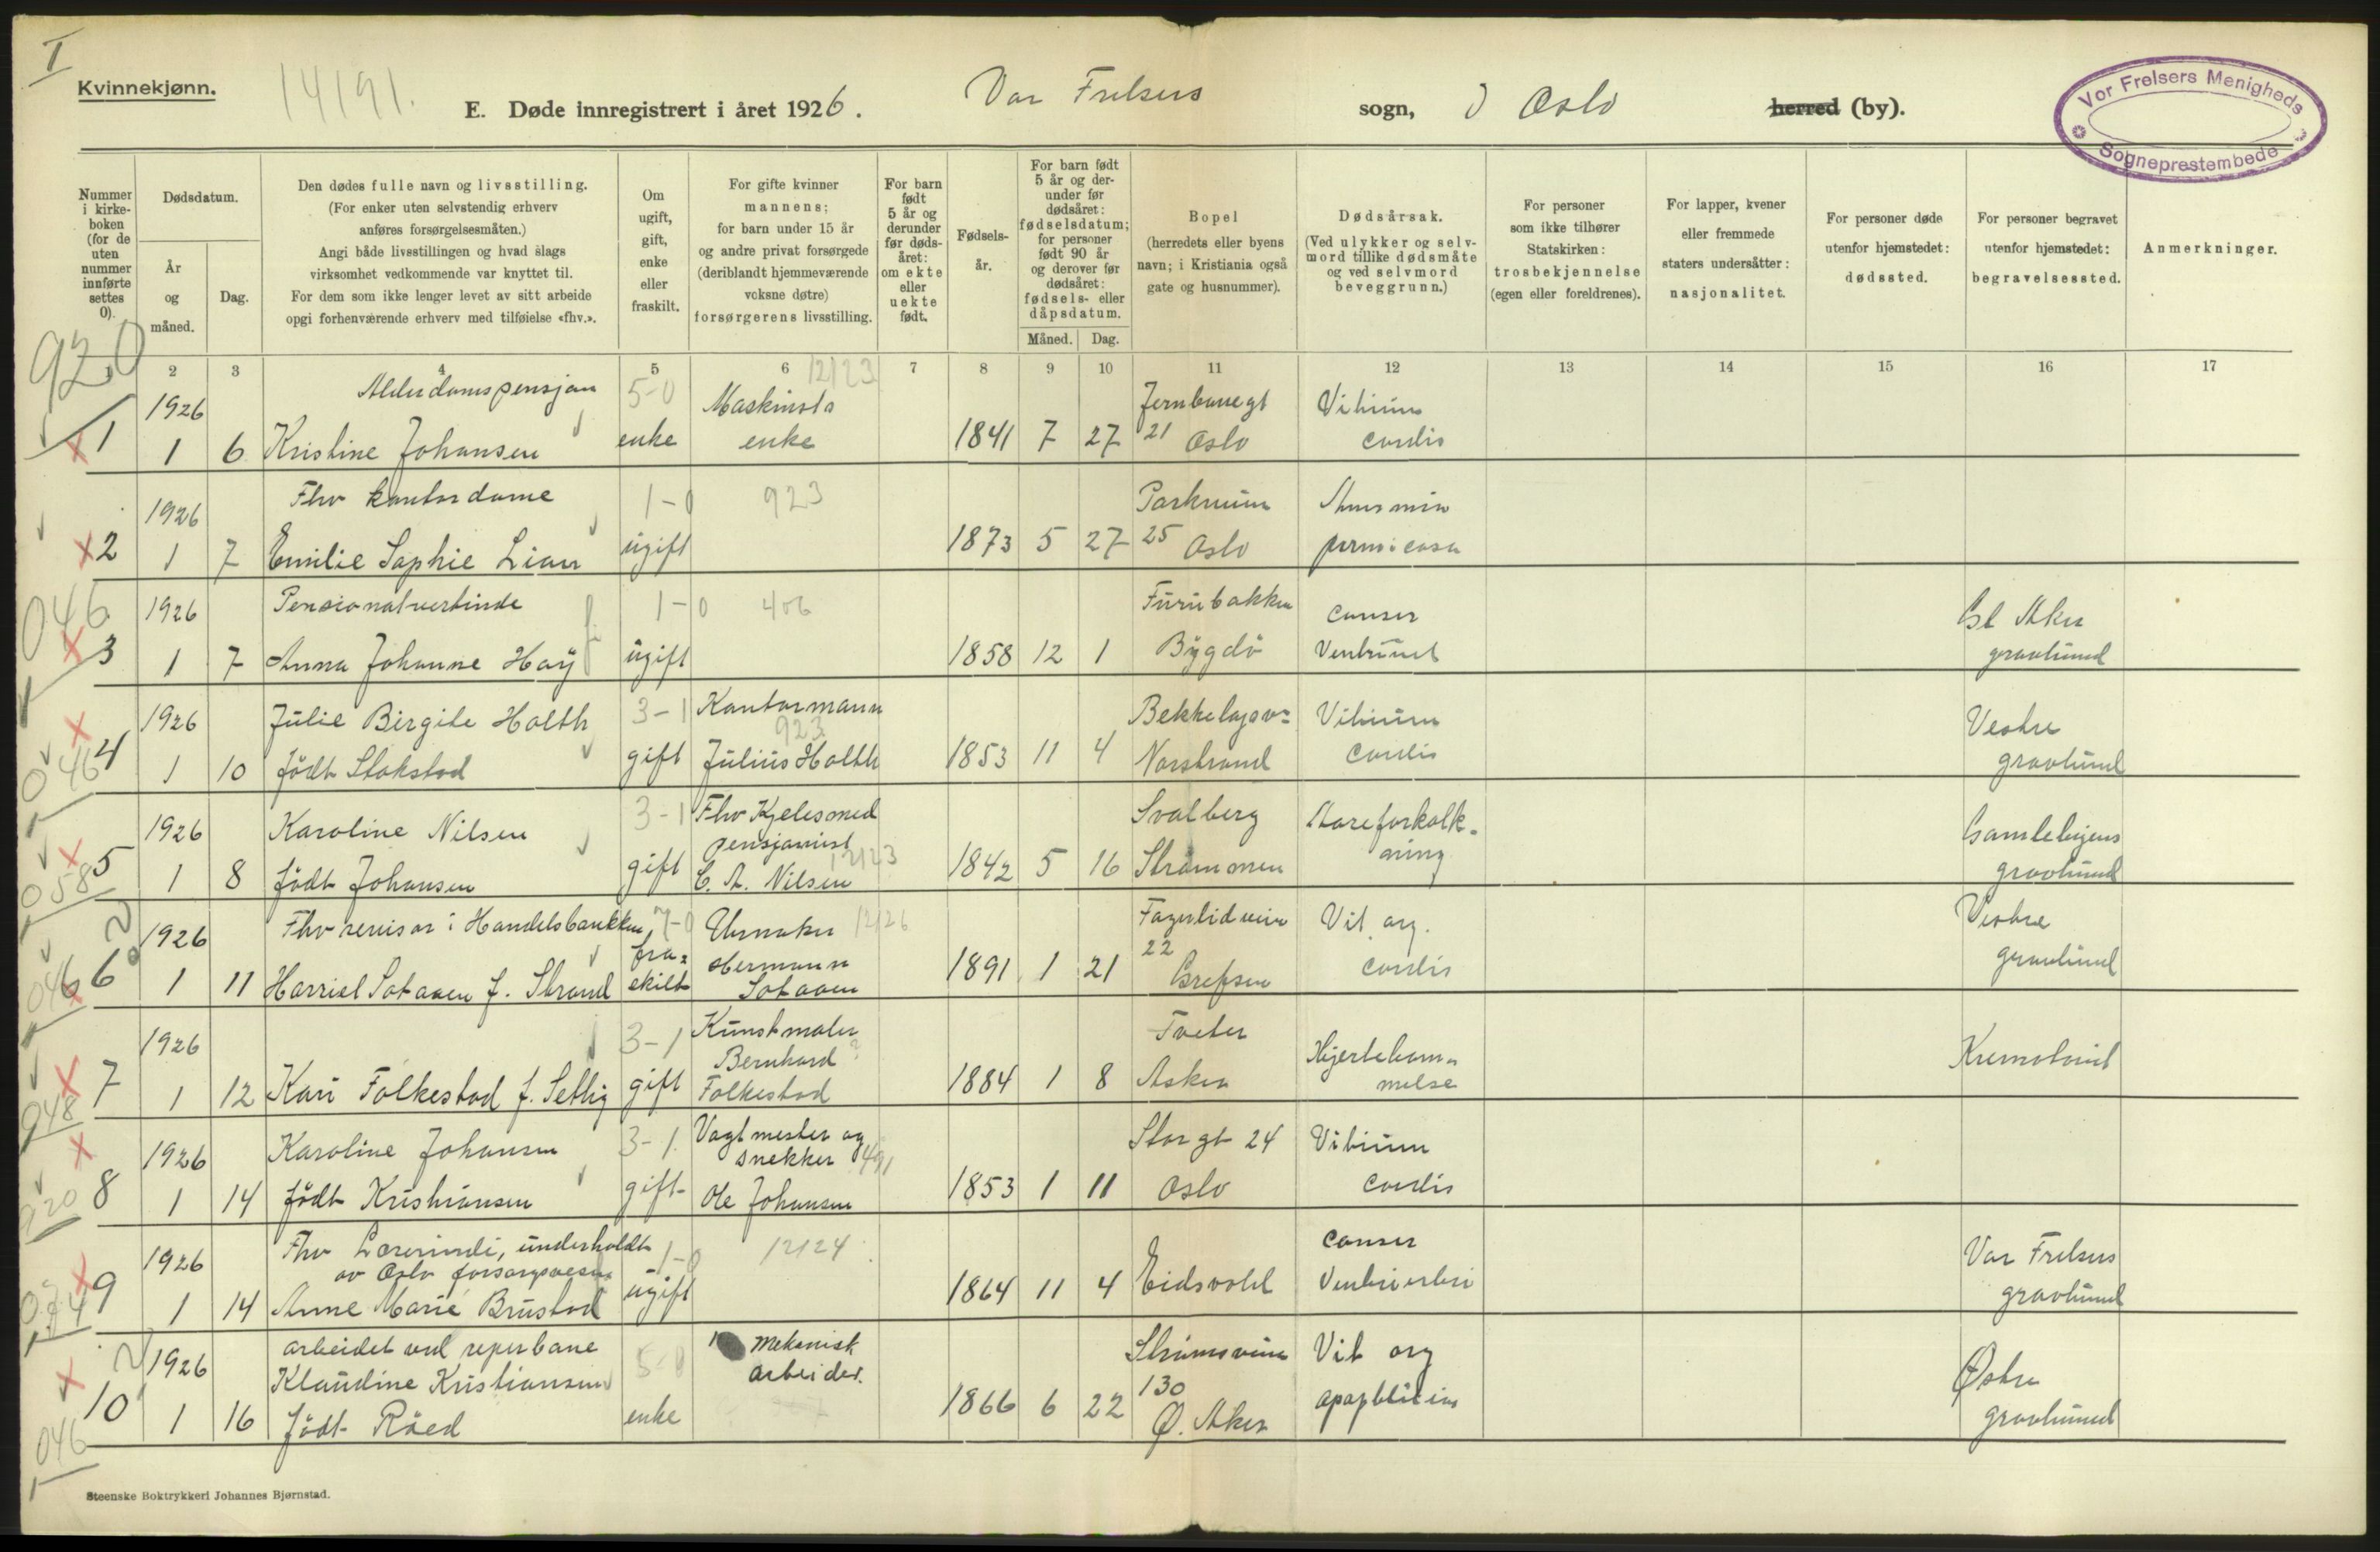 I
Kvinnekjønn.
14191.
E. Døde innregistrert i året 1926.
Vor Frelsers
sogn,
i Oslo
herred (by).
Vor Frelsers Menigheds
Sogneprestembede
Nummer i kirke-boken (for de uten nummer innførte settes 0).
Dødsdatum.
År og måned.
Dag.
Den dødes fulle navn og livsstilling.
(For enker uten selvstendig erhverv
anføres forsørgelsesmåten.)
Angi både livsstillingen og hvad slags
virksomhet vedkommende var knyttet til.
For dem som ikke lenger levet av sitt arbeide
opgi forhenværende erhverv med tilføielse «fhv.».
Om ugift, gift, enke eller fraskilt.
For gifte kvinner
mannens;
for barn under 15 år
og andre privat forsørgede
(deriblandt hjemmeværende
voksne døtre)
forsørgerens livsstilling.
For barn født 5 år og derunder før døds-året: om ekte eller uekte født.
Fødsels-år.
For barn født
5 år og der-
under før
dødsåret:
fødselsdatum;
for personer
født 90 år
og derover før
dødsåret:
fødsels- eller
dåpsdatum.
Måned. Dag.
Bopel
(herredets eller byens
navn; i Kristiania også
gate og husnummer).
Dødsårsak.
(Ved ulykker og selv-
mord tillike dødsmåte
og ved selvmord
beveggrunn.)
For personer
som ikke tilhører
Statskirken:
trosbekjennelse
(egen eller foreldrenes).
For lapper, kvener
eller fremmede
staters undersåtter:
nasjonalitet.
For personer døde
utenfor hjemstedet:
dødssted.
For personer begravet
utenfor hjemstedet:
begravelsessted.
Anmerkninger.
920
1 2 3 4 5 6 7 8 9 10 11 12 13 14 15 16 17
1926 Alderdomspensjon 5-0 Maskinists 12123 Jernbanegt Vitium
1 1 6 Kristine Johansen enke enke 1841 7 27 21 Oslo cordis
1926 Fhv kontordame 1-0 923 Parkveien
2 1 7 Emilie Sophie Lian ugift 1873 5 27 25 Oslo
046 1926 Pensionatvertinde 1-0 406 Furubakken cancer Gl Aker
3 1 7 Anna Johanne Høy ugift 1858 12 1 Bygdö Ventriculi gravlund
1926 Julie Birgite Holth 3-1 Kontormann 923 Bekkelagsv= Vitium Vestre
046 4 1 10 födt Stokstad gift Julius Holth 1853 11 4 Norstrand Cordis gravlund
1926 Karoline Nilsen 3-1 Fhv Kjelesmed pensjonist 12123 Svalberg Aareforkalk- Gamlebyens
058 5 1 8 födt Johansen gift C. A. Nilsen 1842 5 16 Strømmen ning gravlund
1926 Fhv revisor i Handelsbanken 7-0 Urmaker 12126 Fagerlidveien 22 Vit org. Vestre
046 6 1 11 Harriet Sotaaen f. Strand fra=skilt Hermann Sotaaen 1891 1 21 Grefsen cordis gravlund
1926 3-1 Kunstmaler Bernhard Tveter Hjertelam= Krematoriet
048 7 1 12 Kari Folkestad f. gift Folkestad 1884 1 8 Asker melse
1926 Karoline Johansen 3-1 Vagtmester og snekker 491 Storgt 24 Vitium
8 1 14 födt Kristiansen gift Ole Johansen 1853 1 11 Oslo Cordis
1926 Fhv Lærerinde, underholdt av Oslo forsorgsvesen 1-0 12124 cancer Vor Frelsers
9 1 14 Anne Marie Brustad ugift 1864 11 4 Eidsvold Ventriculi gravlund
1926 arbeidet ved reperbane 5-0 mekanisk arbeider. Strømsveien Vit org Østre
Klaudine Kristiansen 130
046 10 1 16 födt Röed enke 1866 6 22 Ø. Aker gravlund
Steenske Boktrykkeri Johannes Bjørnstad.